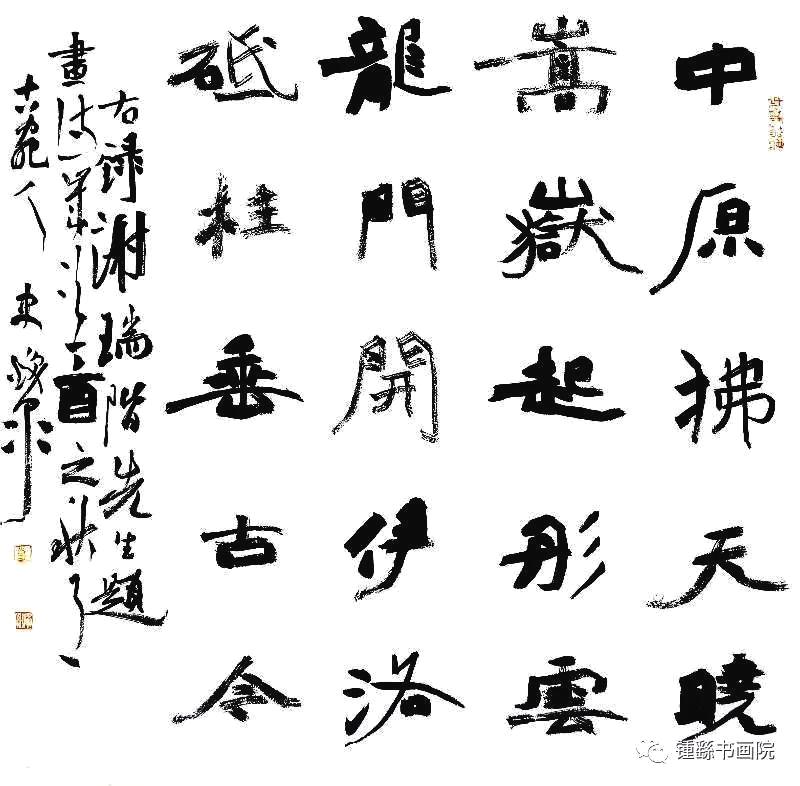 中原拂天曉
嵩嶽起彤雲
龍門開伊洛
砥柱垂古今
右錄謝瑞階先生題
畫詩
之
人 史
锺繇书画院